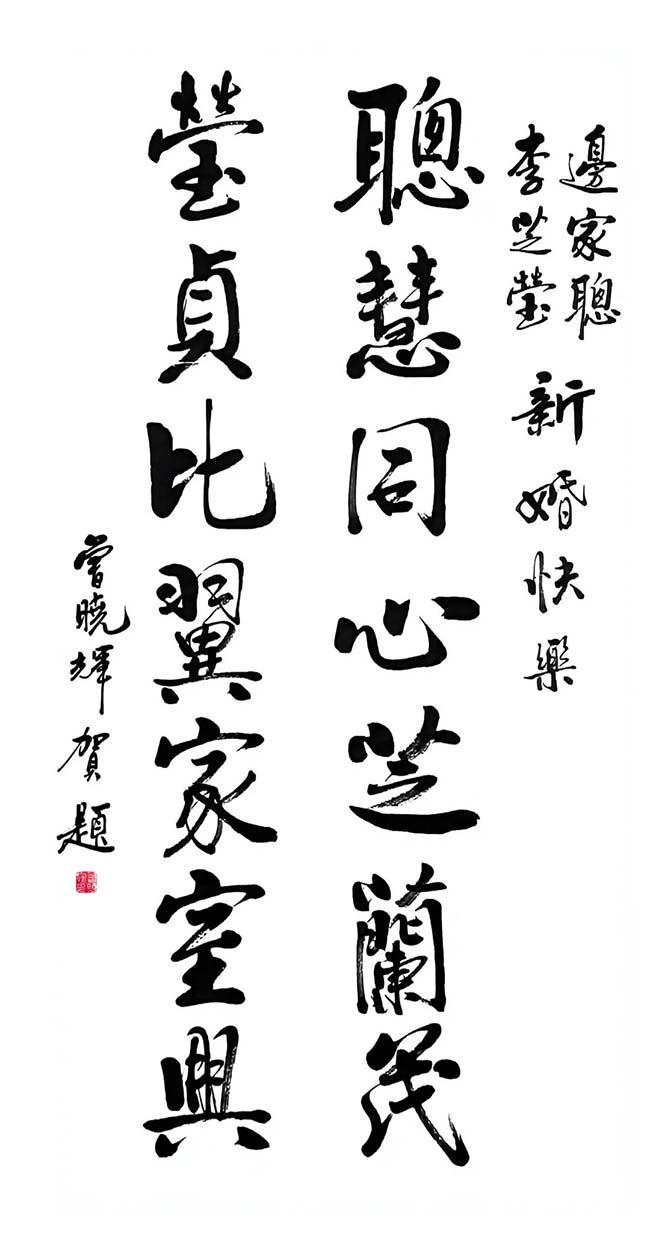 邊家聰
李芝瑩
新婚快樂
聰慧同心芝蘭茂
瑩貞比翼家室興
曾曉輝賀題